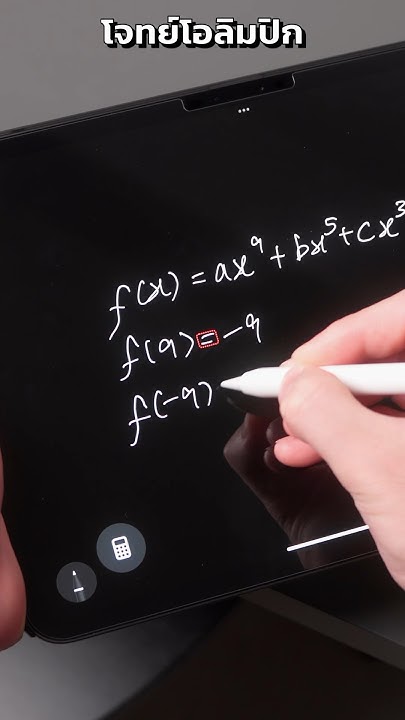 โจทย์โอลิมปิก
f(x) = ax⁹ + bx⁵ + cx³
f(9) = -9
f(-9)